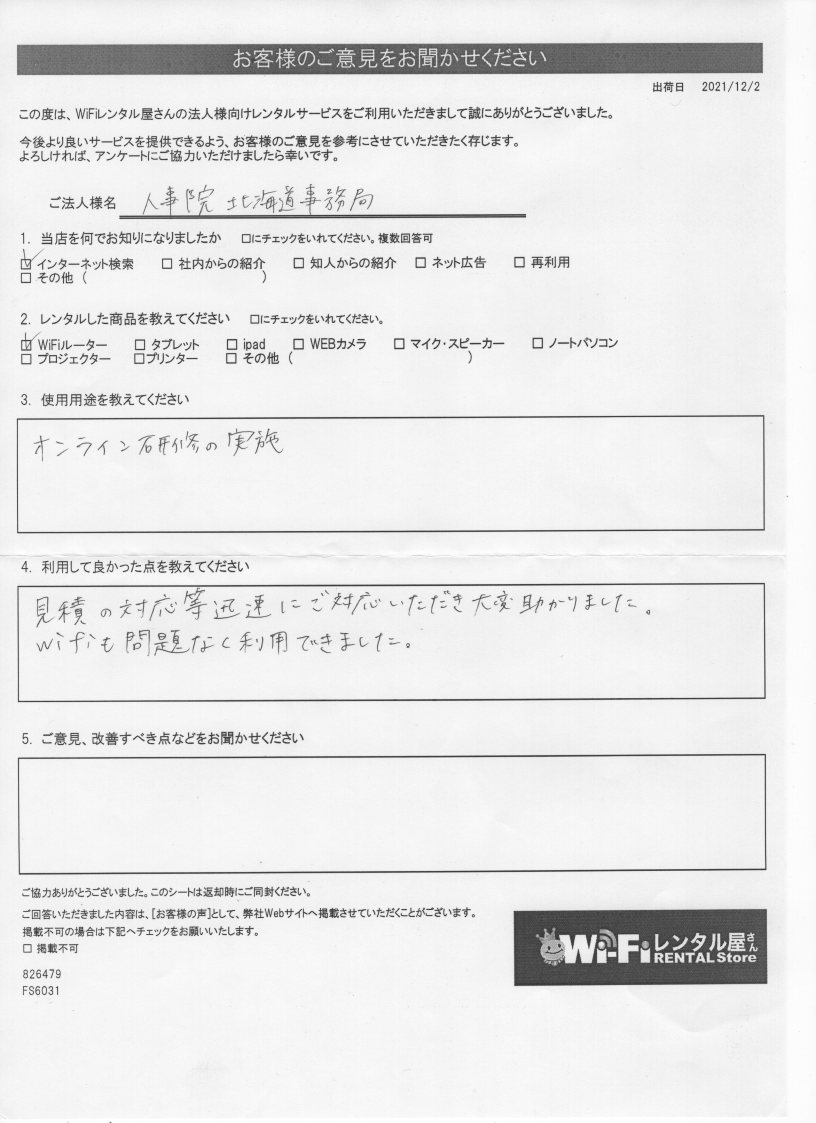 お客様のご意見をお聞かせください
出荷日 2021/12/2
この度は、WiFiレンタル屋さんの法人様向けレンタルサービスをご利用いただきまして誠にありがとうございました。
今後より良いサービスを提供できるよう、お客様のご意見を参考にさせていただきたく存じます。
よろしければ、アンケートにご協力いただけましたら幸いです。
ご法人様名 人事院 北海道事務局
1. 当店を何でお知りになりましたか □にチェックをいれてください。複数回答可
☑ インターネット検索 □ 社内からの紹介 □ 知人からの紹介 □ ネット広告 □ 再利用
□ その他 ( )
2. レンタルした商品を教えてください □にチェックをいれてください。
☑ WiFiルーター □ タブレット □ ipad □ WEBカメラ □ マイク・スピーカー □ ノートパソコン
□ プロジェクター □プリンター □ その他 ( )
3. 使用用途を教えてください
オンライン研修の実施
4. 利用して良かった点を教えてください
見積の対応等迅速にご対応いただき大変助かりました。
wifiも問題なく利用できました。
5. ご意見、改善すべき点などをお聞かせください
ご協力ありがとうございました。このシートは返却時にご同封ください。
ご回答いただきました内容は、[お客様の声]として、弊社Webサイトへ掲載させていただくことがございます。
掲載不可の場合は下記へチェックをお願いいたします。
□ 掲載不可
826479
FS6031
Wi-Fiレンタル屋さん
RENTAL Store